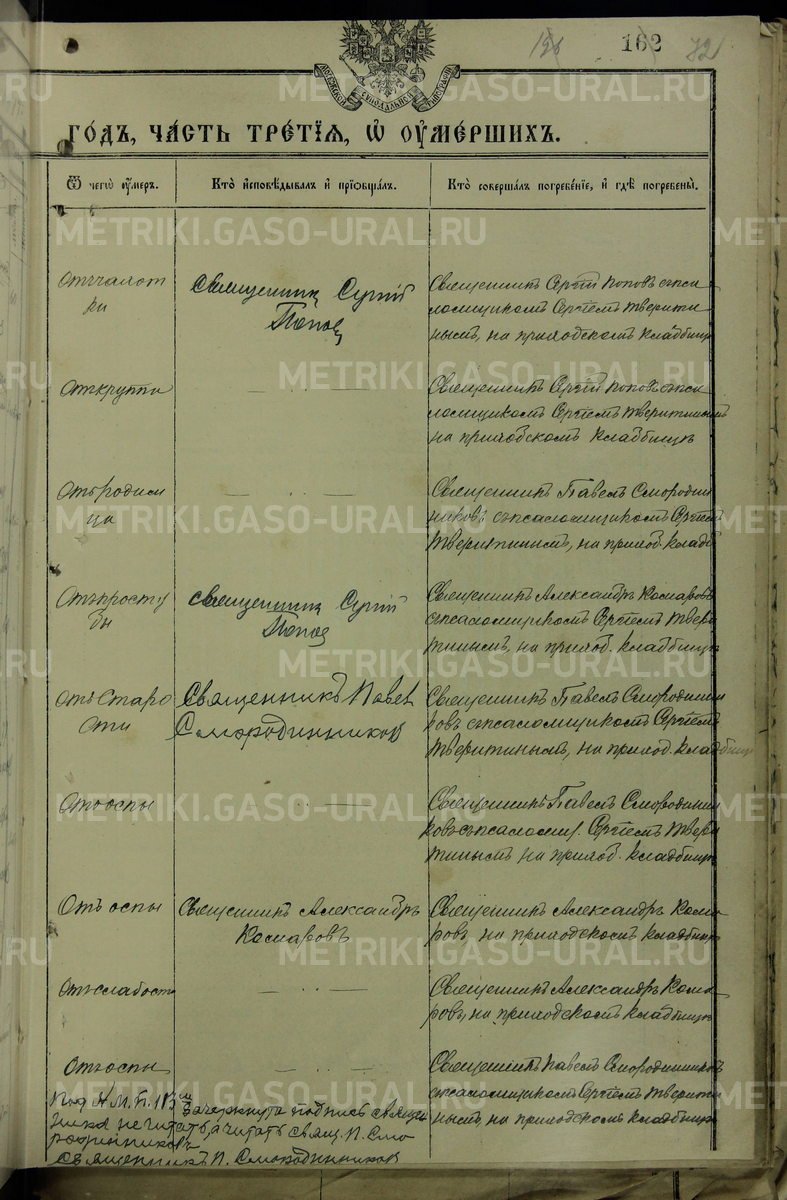 126 162 72
МОСКОВСКОЙ СѴНОДАЛЬНОЙ ТИПОГРАФІИ
METRIKI.GASO-URAL.RU
ГО́ДЪ, ЧА́СТЬ ТРЕ́ТІѦ, Ѡ҆ ОУ҆МЕ́РШИХЪ.
Ѿ чегѡ̀ оу҆́меръ.
Кто̀ и҆сповѣ́дывалъ и҆ прїѡбща́лъ.
Кто̀ соверша́лъ погребе́нїе, и҆ гдѣ̀ погребены̀.
Отъ чахот
ки
Священникъ Сергій
Поповъ
Священникъ Сергій Поповъ съ пса
ломщикомъ Сергѣемъ Тверити
нымъ, на приходскомъ кладбищѣ
Отъ круппа
Священникъ Сергій Поповъ съ пса
ломщикомъ Сергѣемъ Тверитинымъ
на приходскомъ кладбищѣ
Отъ родим
ца
Священникъ Павелъ Смородин
никовъ съ псаломщикомъ Сергѣемъ
Тверитинымъ, на приход. кладб
Отъ просту
ды
Священникъ Сергій
Поповъ
Священникъ Александръ Комаровъ
съ псаломщикомъ Сергѣемъ Твери
тинымъ, на приход. кладбищѣ
Отъ старо
сти
Священникъ Павел
Смородинников
Священникъ Павелъ Смородинни
ковъ съ псаломщикомъ Сергѣемъ
Тверитинымъ, на приход. кладбищ
Отъ оспы
Священникъ Павелъ Смородинни
ковъ съ псаломщ. Сергѣемъ Твери
тинымъ на приход. кладбищѣ
Отъ оспы
Священникъ Александръ
Комаровъ
Священникъ Александръ Кома
ровъ, на приходскомъ кладбищѣ
Отъ слабости
Священникъ Александръ Кома
ровъ, на приходскомъ кладбищѣ
Отъ оспы
Священникъ Павелъ Смородинниковъ
съ псаломщикомъ Сергѣемъ Тверити
нымъ на приходскомъ кладбищѣ
Под зачеркнута подпись священ
ника не читать, а читать Свящ. П. Смо
родинниковъ
Священникъ П. Смородинников